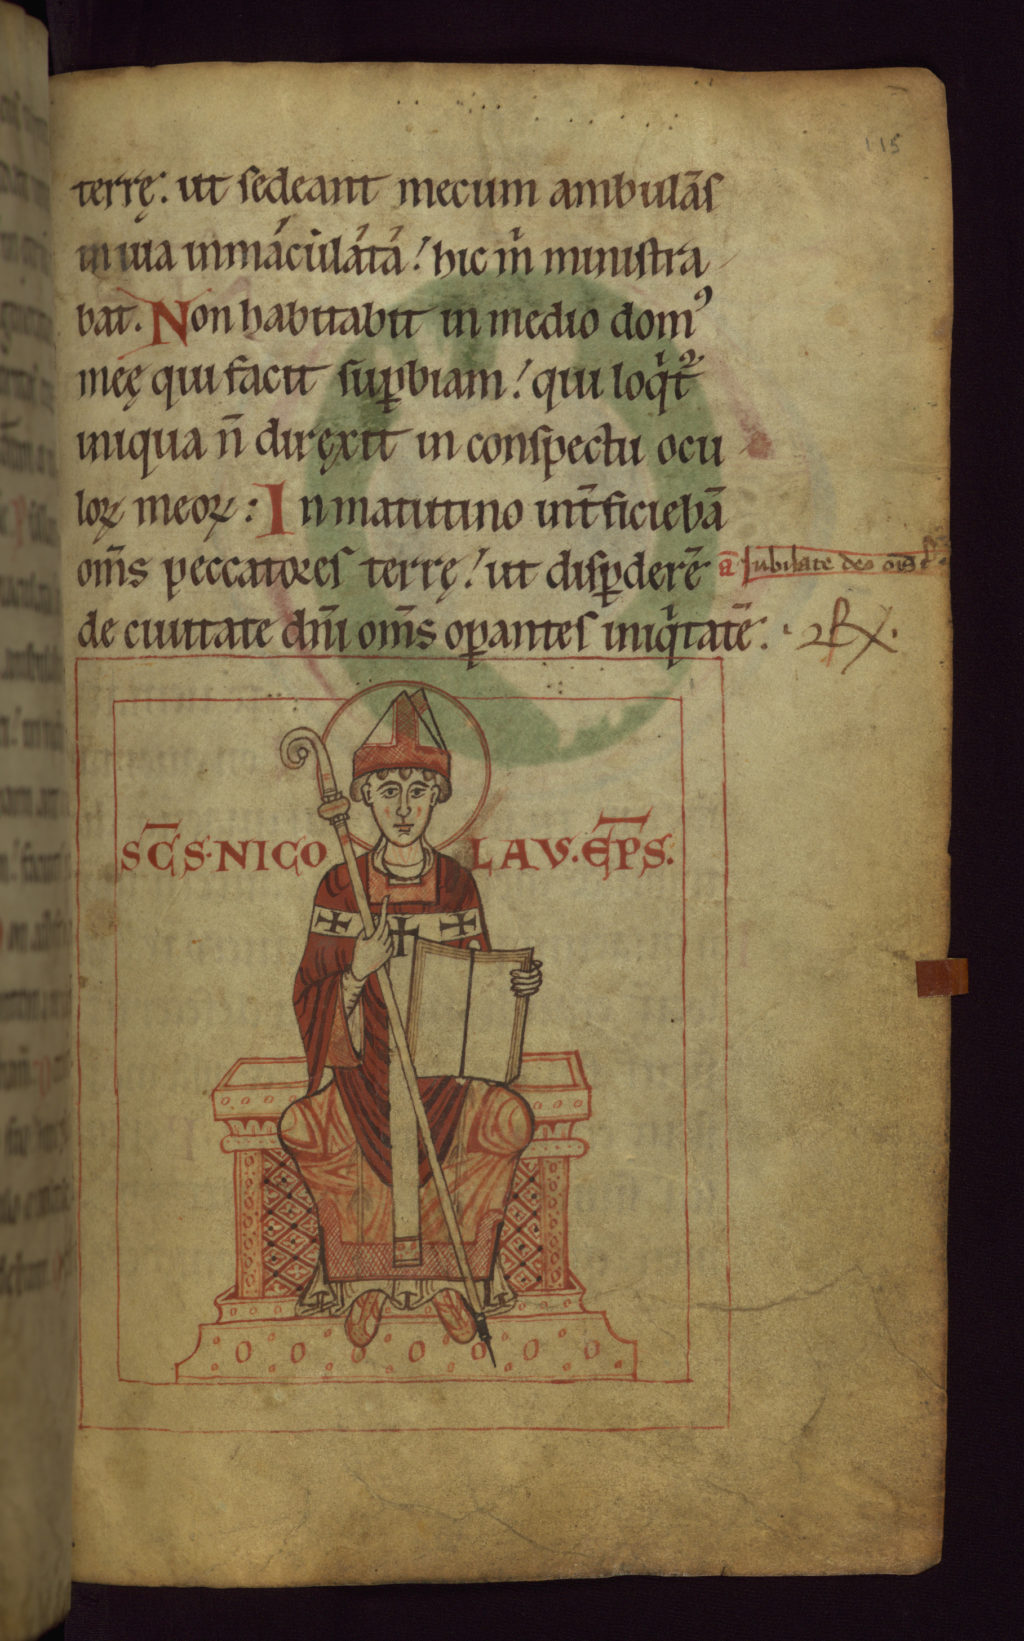 115
terrę. ut sedeant mecum ambulās
in uia inmaculata! hic m̄ ministra
bat. Non habitabit in medio dom⁹
meę qui facit suꝑbiam! qui loq̄t᷑
iniqua n̄ direxit in conspectu ocu
loꝝ meoꝝ: In matutino int̄ficiebā
om̄s peccatores terrę! ut disꝑderē
a᷃ Iubilate deo
de ciuitate dn̄i om̄s oꝑantes iniqͥtatē.
SC̄S·NICO LAV·EP̄S.